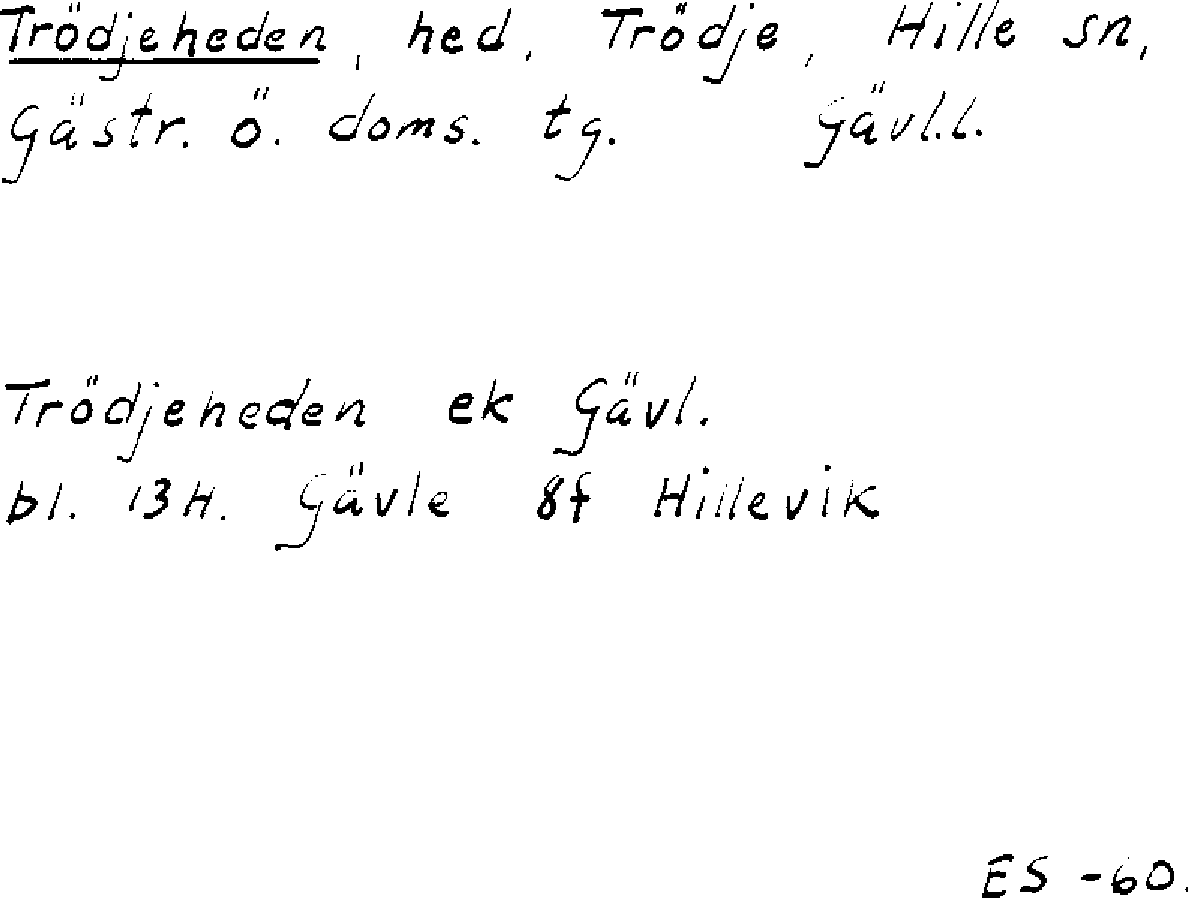 Trödjeheden, hed, Trödje, Hille sn,
Gästr. ö. doms. tg. Gävl.l.
Trödjeheden ek Gävl.
bl. 13H. Gävle 8f Hillevik
ES -60.